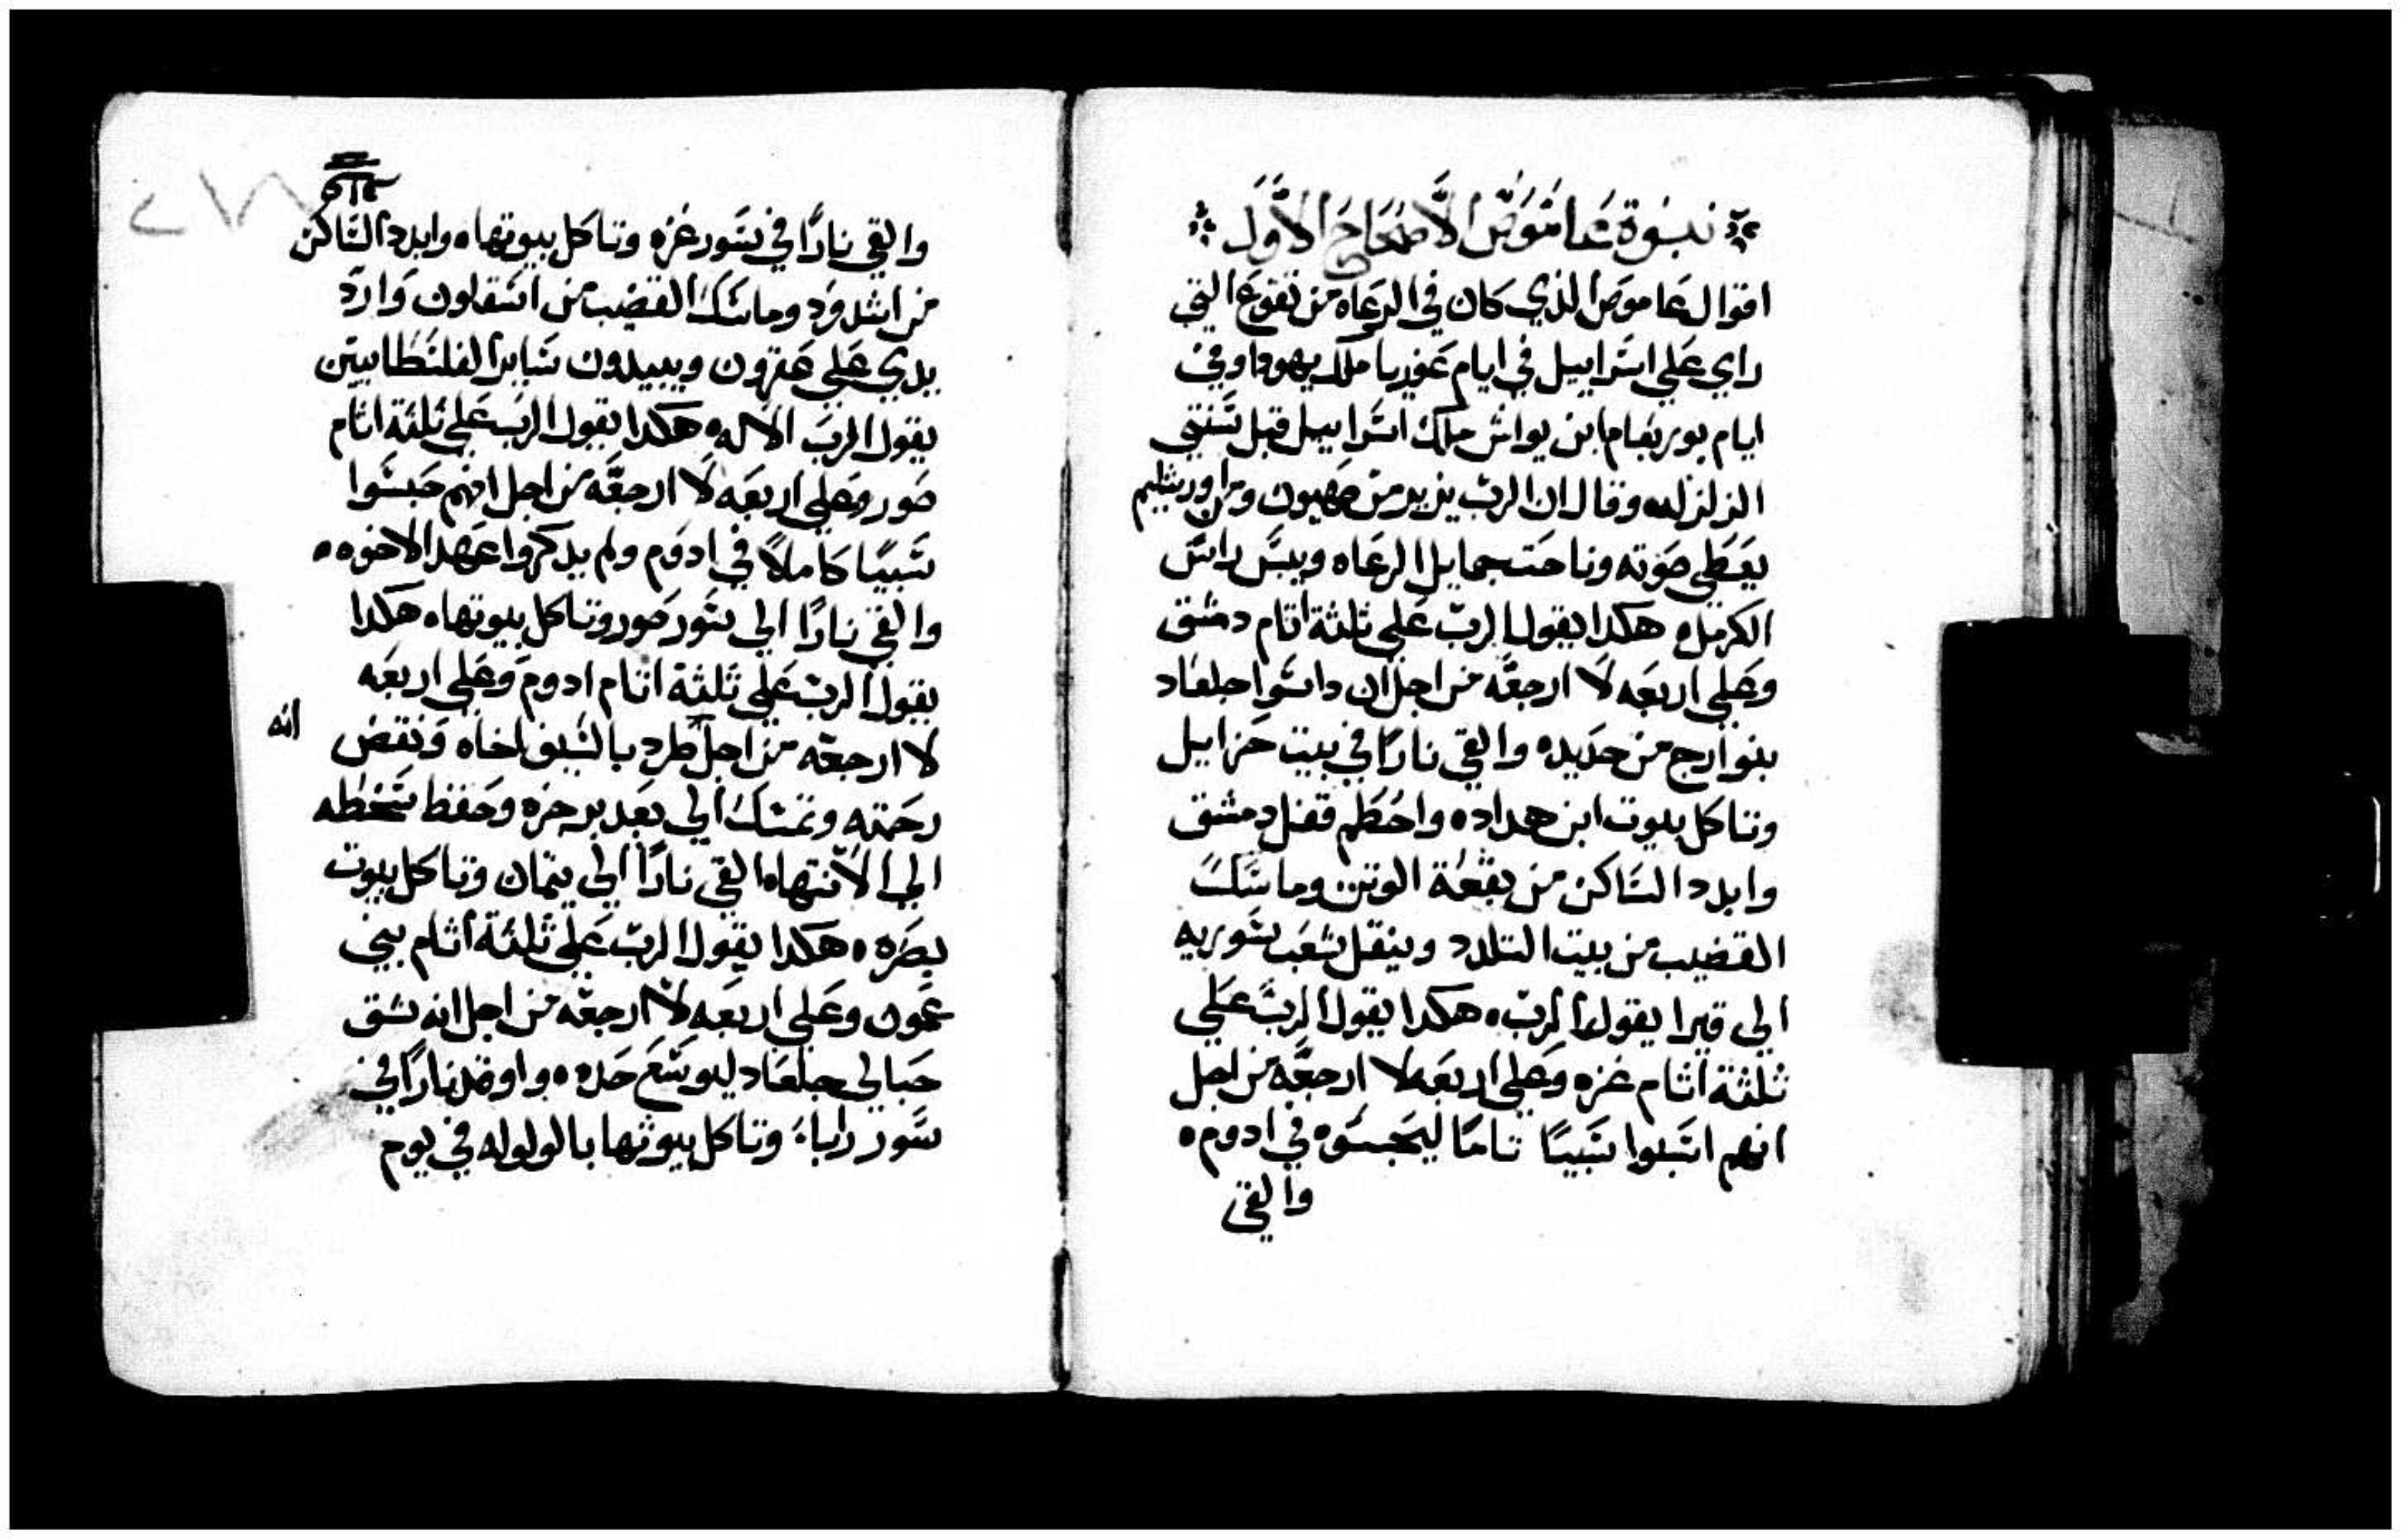 نبوة عاموص الاصحاح الاول
اقوال عاموص الذي كان في الرعاه من تقوع التي
راي علي اسراييل في ايام عوزيا ملك يهودا وفي
ايام يوربعام ابن يواش ملك اسراييل قبل سنتي
الزلزله وقال ان الرب يزير من صهيون ومن اورشليم
يعطي صوته وناحت جمايل الرعاه ويبس راس
الكرمل ه هكدا يقول الرب علي ثلثة اثام دمشق
وعلي اربعه لا ارجعه من اجل ان داسوا جلعاد
بنوارج من حديده والقي نارا في بيت حزاييل
وتاكل بيوت ابن هداد ه واحطم قفل دمشق
وابدد الساكن من بقعة الوتن وماسك
القضيب من بيت التلدد وينقل شعب سوريه
الي قيرا يقول الرب ه هكدا يقول الرب علي
ثلثة اثام غزه وعلي اربعه لا ارجعه من اجل
انهم استبلوا سبيا تاما ليحبسوه في ادوم ه
والقي
والقي نارا في سور غزه وتاكل بيوتها ه وابدد الساكن
من اشدود وماسك القضيب من اسقلون وارد
يدي علي عقرون ويبيدون ساير الفلسطانيين
يقول الرب الاله ه هكدا يقول الرب علي ثلثة اثام
صور وعلي اربعه لا ارجعه من اجل انهم حبسوا
سبيا كاملا في ادوم ولم يدكروا عهد الاخوه ه
والقي نارا الي سور صور وتاكل بيوتها ه هكدا
يقول الرب علي ثلثة اثام ادوم وعلي اربعه
لا ارجعه من اجل انه طرد بالسيف اخاه ونقض
رحمته وتمسك الي بعد برجزه وحفظ سخطه
الي الانتها ه القي نارا الي تيمان وتاكل بيوت
بصره ه هكدا يقول الرب علي ثلثة اثام بني
عمون وعلي اربعه لا ارجعه من اجل انه شق
حبالي جلعاد ليوسع حده ه واوقد نارا في
سور رابا وتاكل بيوتها بالولوله في يوم